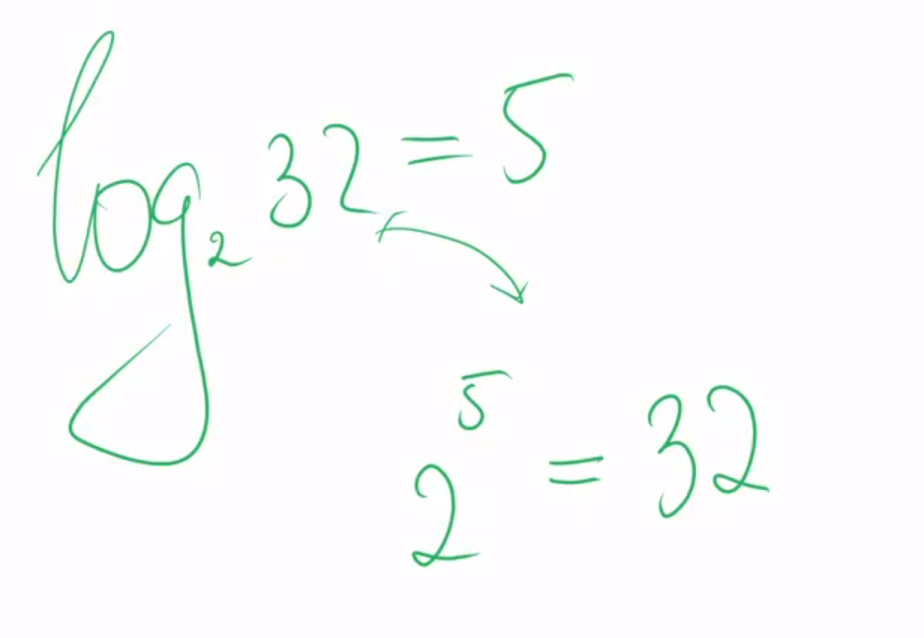 log₂ 32 = 5
2⁵ = 32